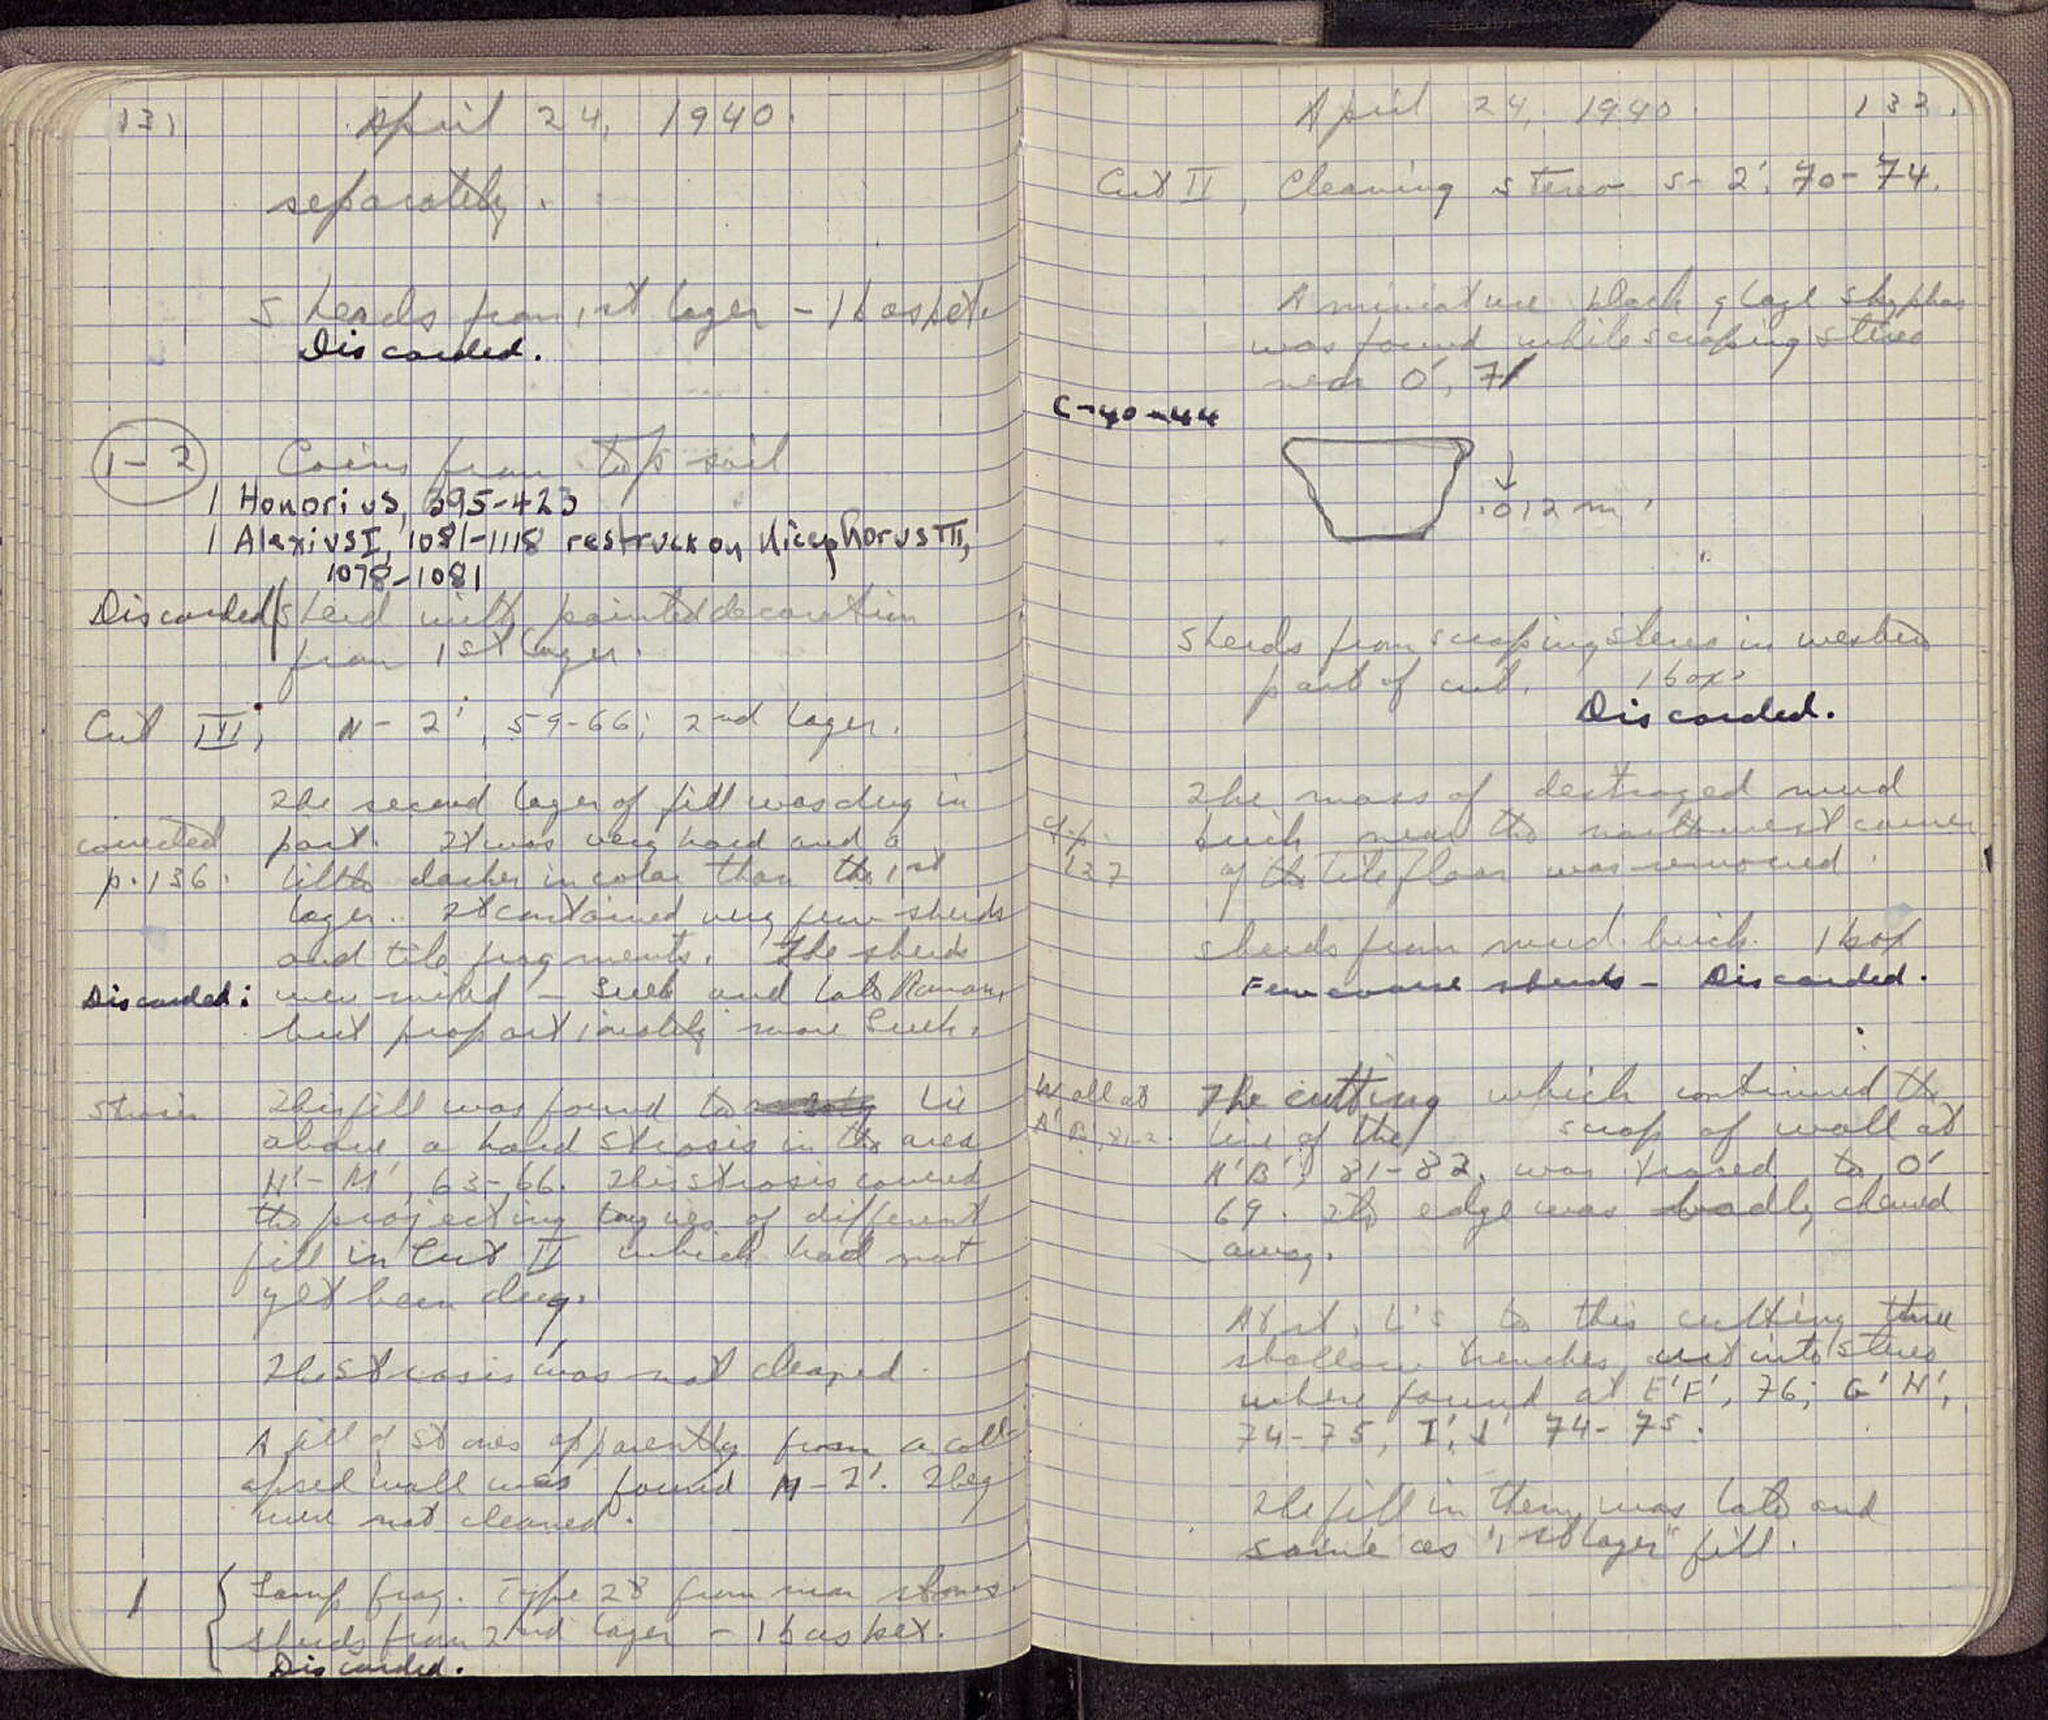 131
April 24, 1940.
separately.
Sherds from 1st layer - 1 basket.
Discarded.
1-2 Coins from top soil
1 Honorius, 395-423
1 Alexius I, 1081-1118 restruck on Nicephorus III,
1078-1081
Discarded / Sherd with painted decoration
from 1st layer.
Cut III; N-2', 59-66; 2nd layer.
The second layer of fill was dug in
corrected part. It was very hard and a
p. 136. little darker in color than the 1st
layer. It contained very few sherds
and tile fragments. The sherds
Discarded: were mixed - Greek and Late Roman,
but proportionately more Greek.
Strosis This fill was found to lie
above a hard strosis in the area
H'-M', 63-66. This strosis covered
the projecting tongues of different
fill in Cut II which had not
yet been dug.
The strosis was not cleaned.
A fill of stones apparently from a coll-
apsed wall was found M-2'. They
were not cleaned.
1 { Lamp frag. Type 28 from near stones.
Sherds from 2nd layer - 1 basket.
Discarded.
April 24, 1940. 133.
Cut II, Cleaning stereo S-2', 70-74.
A miniature black glaze skyphos
was found while scraping stereo
near O', 71
C-40-44
.012 m.
Sherds from scraping stereo in western
part of cut. 1 box.
Discarded.
The mass of destroyed mud
cf. p. brick near the northwest corner
137 of the Tile Floor was removed.
Sherds from mud brick. 1 box
Few coarse sherds - Discarded.
Wall at The cutting which continued the
A' B', 81-2. line of the scrap of wall at
A'B', 81-82, was traced to O'
69. Its edge was badly chewed
away.
At rt. L's to this cutting three
shallow trenches cut into stereo
where found at E'F', 76; G'H',
74-75, I', J' 74-75.
The fill in them was late and
same as "1st layer" fill.